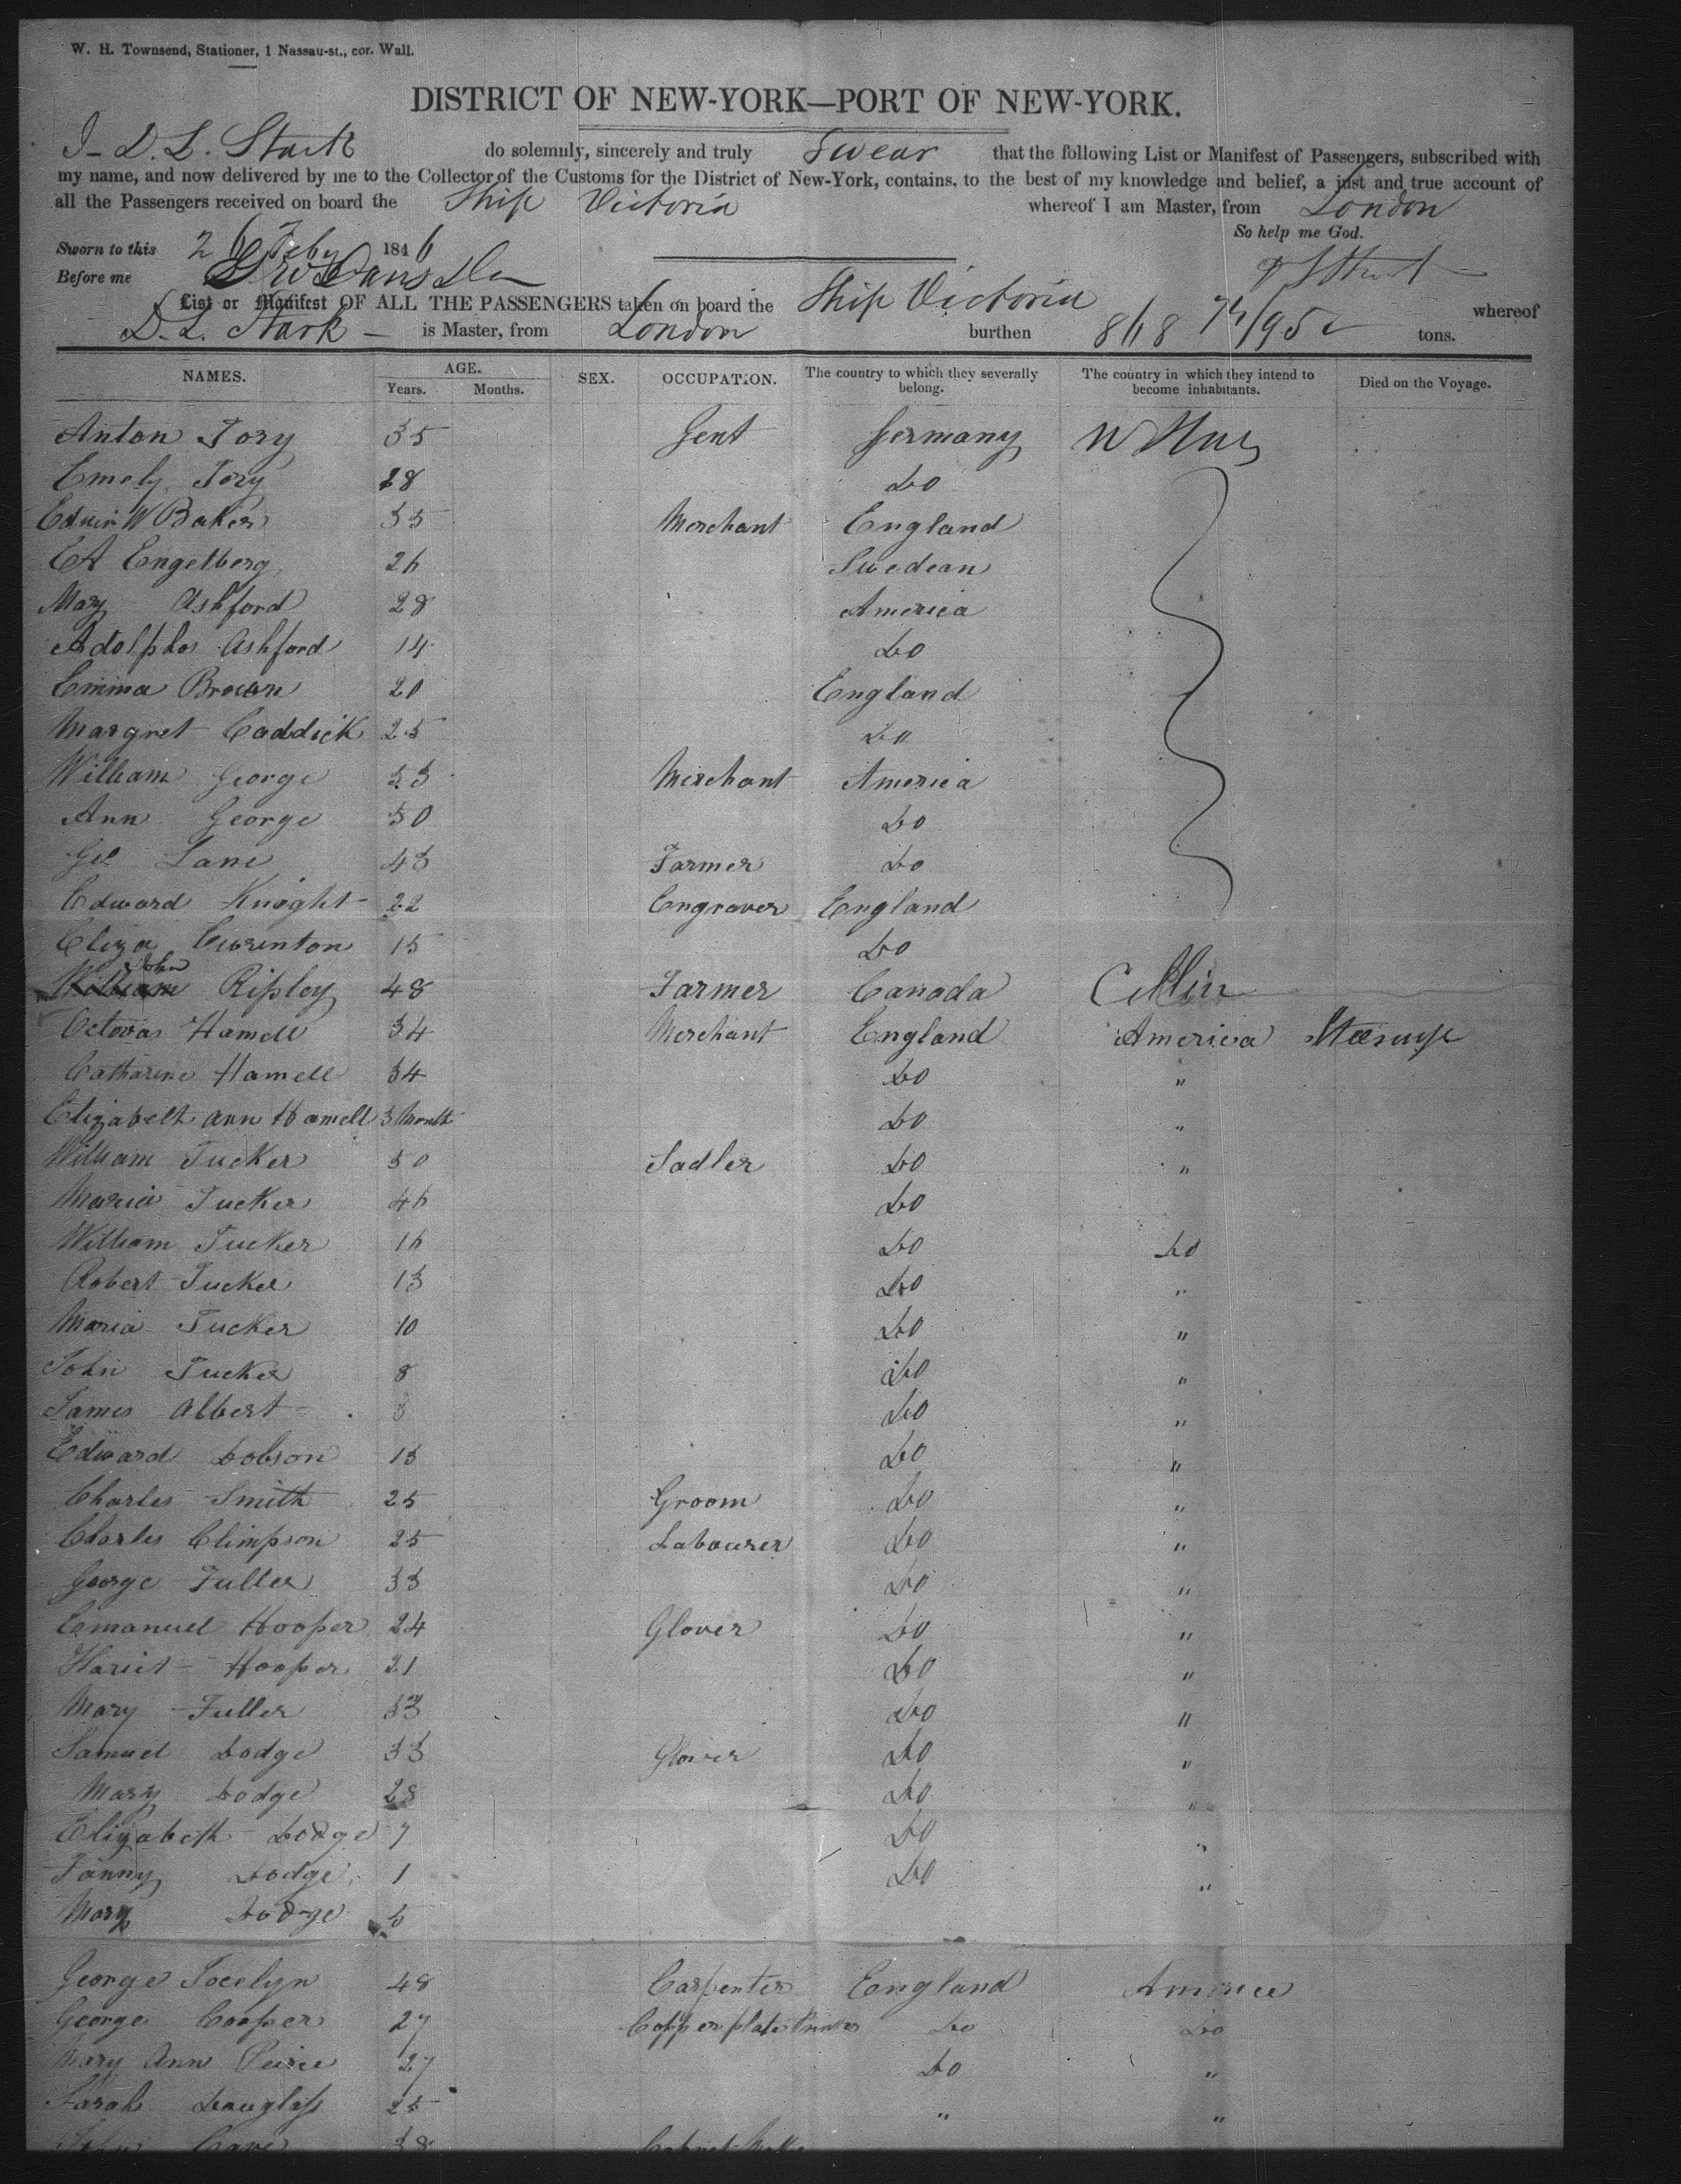 W. H. Townsend, Stationer, 1 Nassau-st., cor. Wall.
DISTRICT OF NEW-YORK—PORT OF NEW-YORK.
I- D. L. Stark do solemnly, sincerely and truly Swear that the following List or Manifest of Passengers, subscribed with
my name, and now delivered by me to the Collector of the Customs for the District of New-York, contains, to the best of my knowledge and belief, a just and true account of
all the Passengers received on board the Ship Victoria whereof I am Master, from London
So help me God.
Sworn to this 26 Feby 1846
Before me
List or Manifest OF ALL THE PASSENGERS taken on board the Ship Victoria whereof
D. L. Stark - is Master, from London burthen 868 /95 tons.
NAMES. AGE. SEX. OCCUPATION. The country to which they severally belong. The country in which they intend to become inhabitants. Died on the Voyage.
Years. Months.
Anton Tory 35 Gent Germany
Emely Tory 28 Do
Edwin W Baker 35 Merchant England
EA Engelberg 26 Swedean
Mary Ashford 28 America
Adolphos Ashford 14 Do
Emma Brown 20 England
Margret Caddick 25 Do
William George 53 Merchant America
Ann George 50 Do
Geo Lane 43 Farmer Do
Edward Knight 22 Engraver England
Eliza 15 Do
John
William Ripley 48 Farmer Canada
Octovas Hamell 34 Merchant England America Steerage
Catharine Hamell 34 Do "
Elizabeth Ann Hamell 3 Month Do "
William Tucker 50 Sadler Do "
Maria Tucker 46 Do
William Tucker 16 Do Do
Robert Tucker 13 Do "
Maria Tucker 10 Do "
John Tucker 8 Do "
James Albert 3 Do "
Edward Dobson 13 Do "
Charles Smith 25 Groom Do "
Charles Climpson 25 Labourer Do "
George Fuller 33 Do "
Emanuel Hooper 24 Glover Do "
Hariet Hooper 21 Do "
Mary Fuller 33 Do "
Samuel Dodge 33 Glover Do "
Mary Dodge 28 Do "
Elizabeth Dodge 7 Do "
Fanny Dodge 1 Do "
Mary Dodge 5
George Jocelyn 48 Carpenter England America
George Cooper 27 Copper plate Printer Do Do
Mary Ann 27 Do "
Sarah Douglass 25 " "
John Cave 38